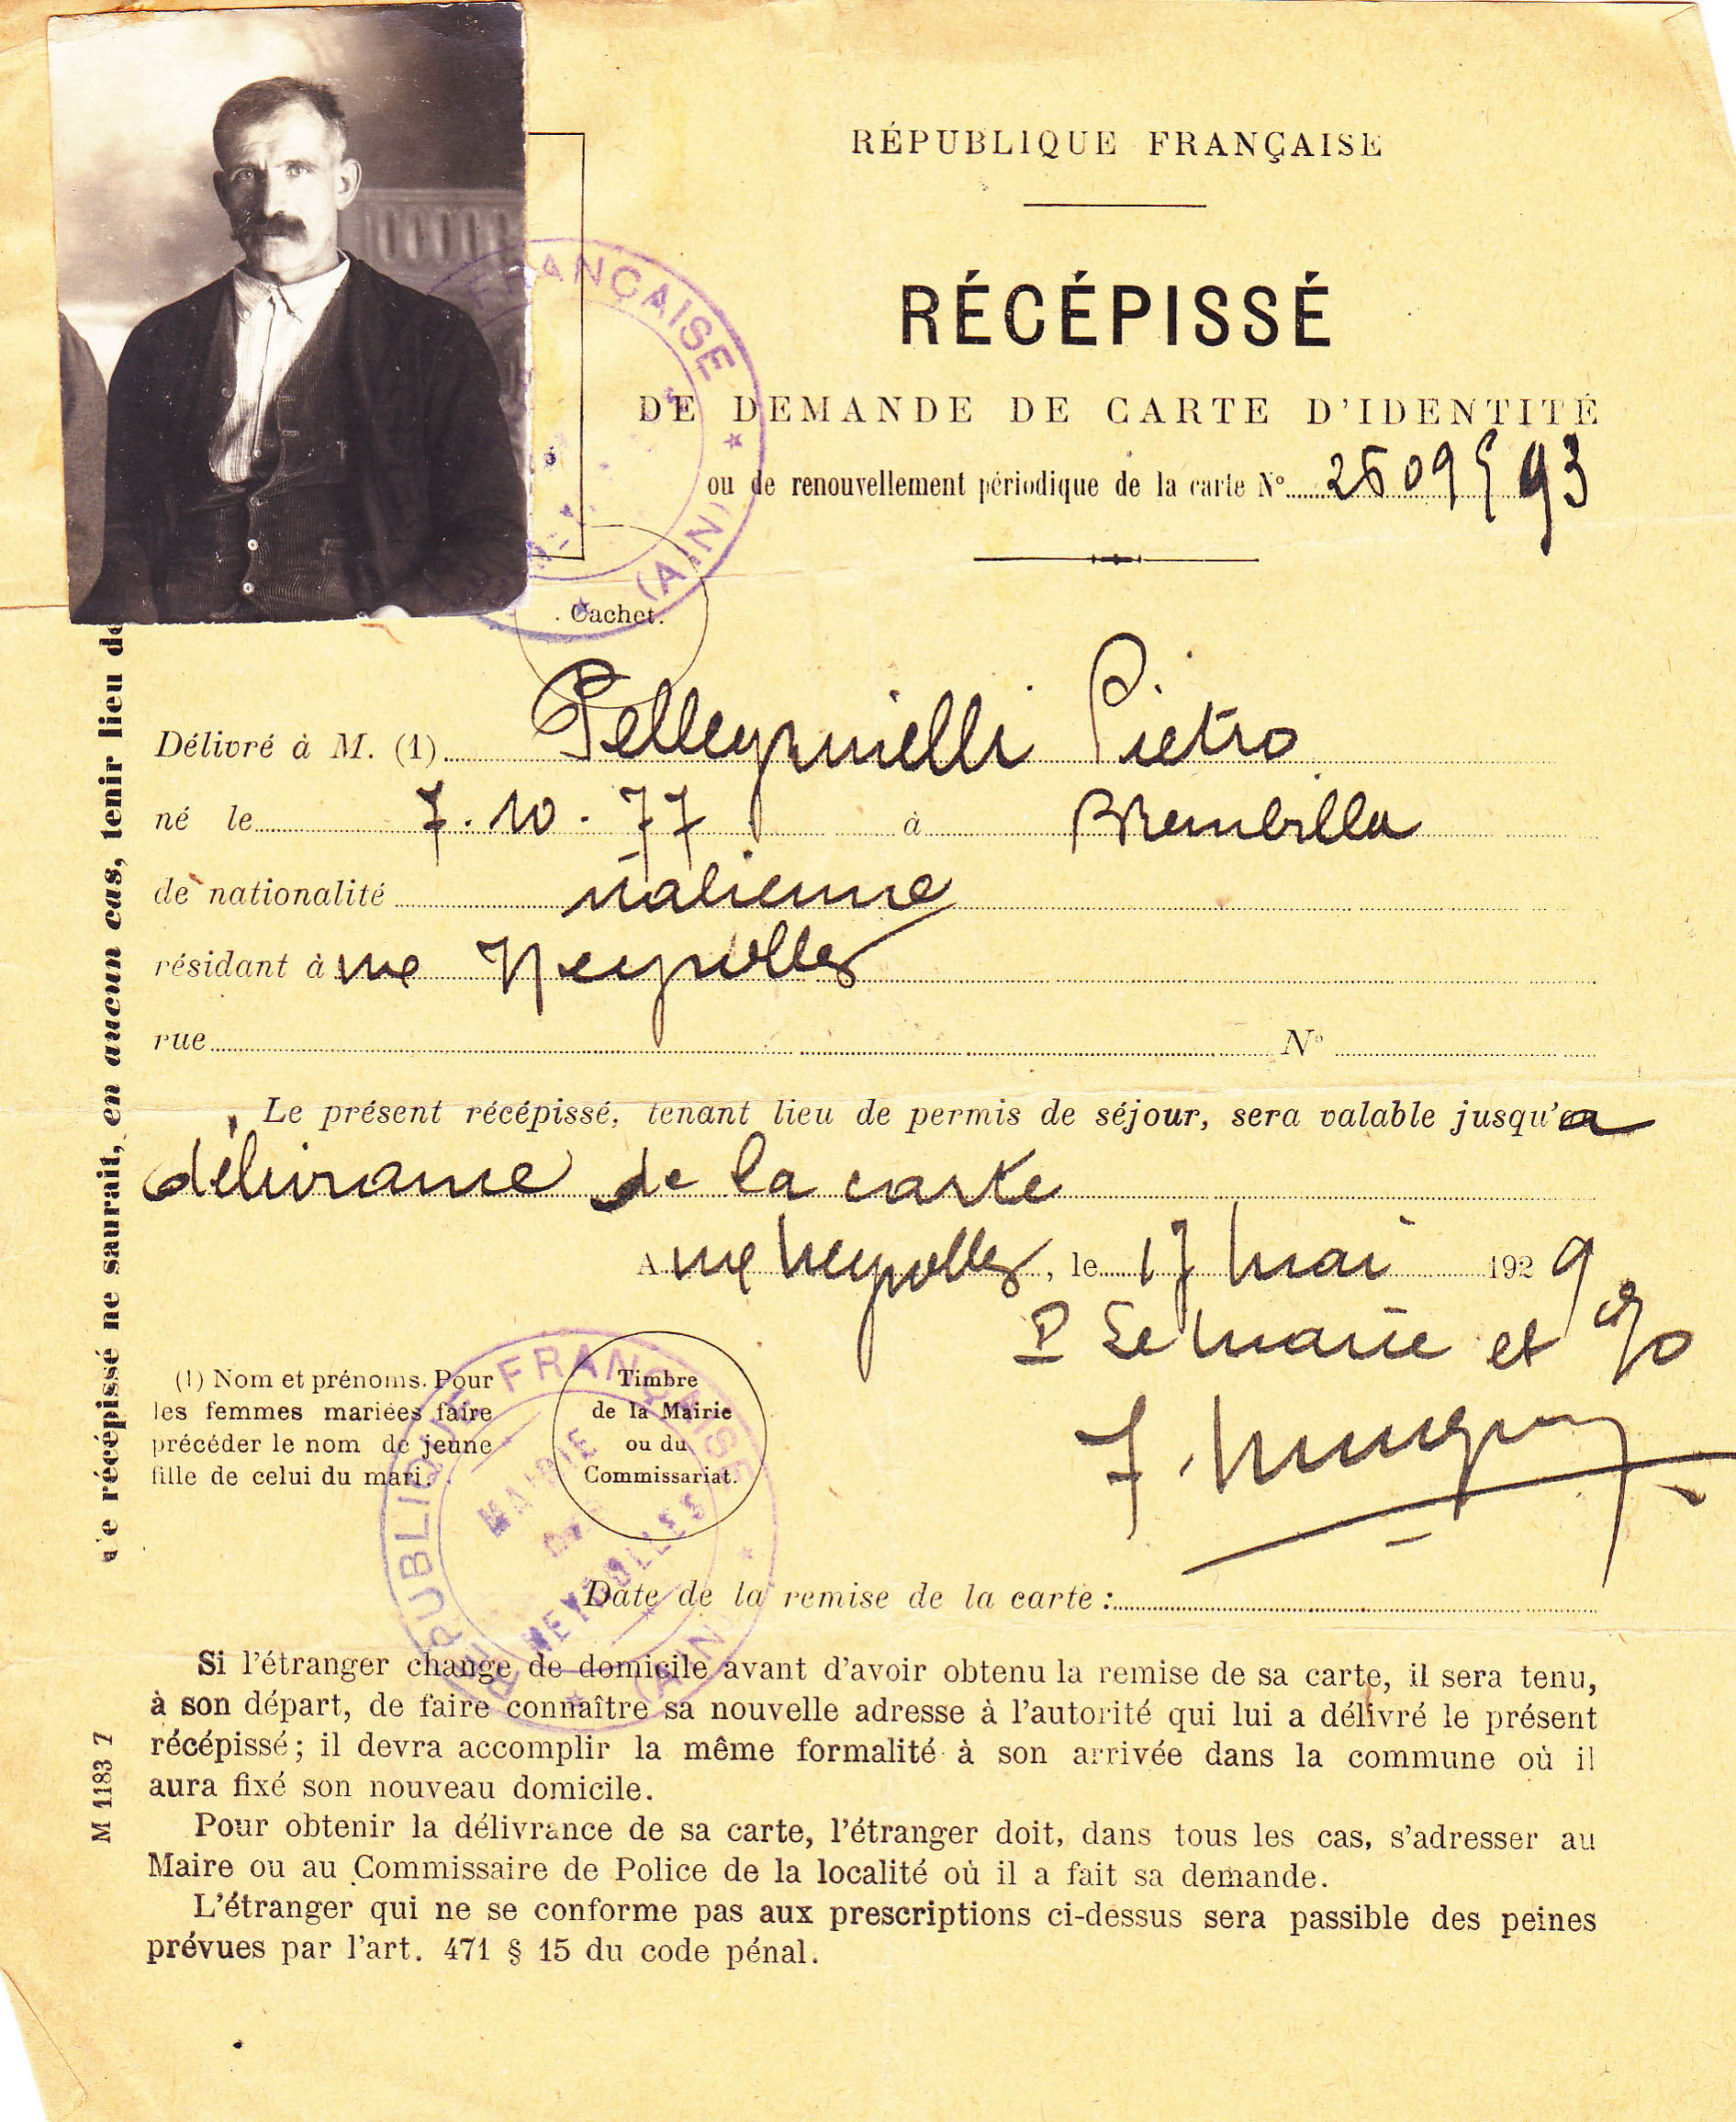 RÉPUBLIQUE FRANÇAISE
RÉCÉPISSÉ
DE DEMANDE DE CARTE D'IDENTITÉ
ou de renouvellement périodique de la carte N° 93
FRANÇAISE
(AIN)
Cachet.
Délivré à M. (1) Pellegrinelli Pietro
né le 7.10.77 à Brembilla
de nationalité italienne
résidant à Neyrolles
rue N°
Le présent récépissé, tenant lieu de permis de séjour, sera valable jusqu'a
délivrance de la carte
A Neyrolles, le 17 mai 1929
P Le Maire et
(1) Nom et prénoms. Pour
les femmes mariées faire
précéder le nom de jeune
fille de celui du mari.
Timbre
de la Mairie
ou du
Commissariat.
RÉPUBLIQUE FRANÇAISE
MAIRIE
DE
NEYROLLES
(AIN)
Date de la remise de la carte :
Si l'étranger change de domicile avant d'avoir obtenu la remise de sa carte, il sera tenu,
à son départ, de faire connaître sa nouvelle adresse à l'autorité qui lui a délivré le présent
récépissé; il devra accomplir la même formalité à son arrivée dans la commune où il
aura fixé son nouveau domicile.
Pour obtenir la délivrance de sa carte, l'étranger doit, dans tous les cas, s'adresser au
Maire ou au Commissaire de Police de la localité où il a fait sa demande.
L'étranger qui ne se conforme pas aux prescriptions ci-dessus sera passible des peines
prévues par l'art. 471 § 15 du code pénal.
récépissé ne saurait, en aucun cas, tenir lieu de
M 1183 7